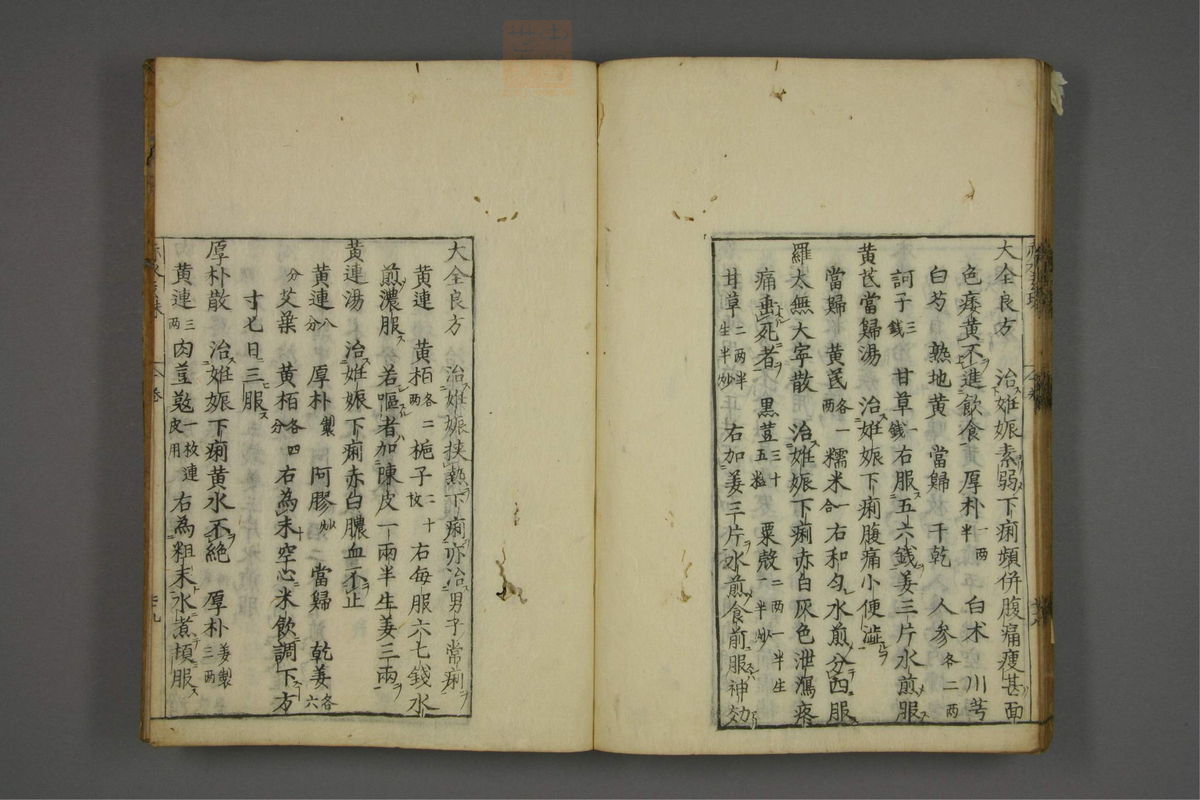 大全良方　治姙娠素弱下痢頻併腹痛瘦甚面
色痿黄不進飲食　厚朴一两半　白术　川芎
白芍　熟地黄　當歸　干乾　人参各二两
訶子三錢　甘草一錢　右服五六錢姜三片水煎服
黄芪當歸湯　治姙娠下痢腹痛小便澁
當歸　黄芪各一两　糯米一合　右和匀水煎分四服
羅太無大寧散　治姙娠下痢赤白灰色泄瀉疼
痛垂死者　黒荳三十五粒　粟殻二两一半生一半炒
甘草二两半生半炒　右加姜三片水煎食前服神効
大全良方　治姙娠挟熱下痢亦治男子常痢
黄連　黄栢各二两　梔子二十枚　右每服六七錢水
煎濃服　若嘔者加陳皮一兩半生姜三兩
黄連湯　治姙娠下痢赤白膿血不止
黄連八分　厚朴製　阿膠炒　當歸　乾姜各六
分　艾葉　黄栢各四分　右為末空心米飲調下方
寸匕日三服
厚朴散　治姙娠下痢黄水不絶　厚朴姜製三两
黄連三两　肉荳蔲一枚連皮用　右為粗末水煮頓服